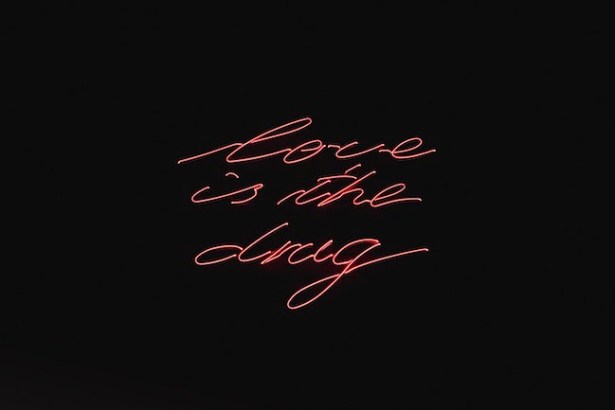 love
is the
drug